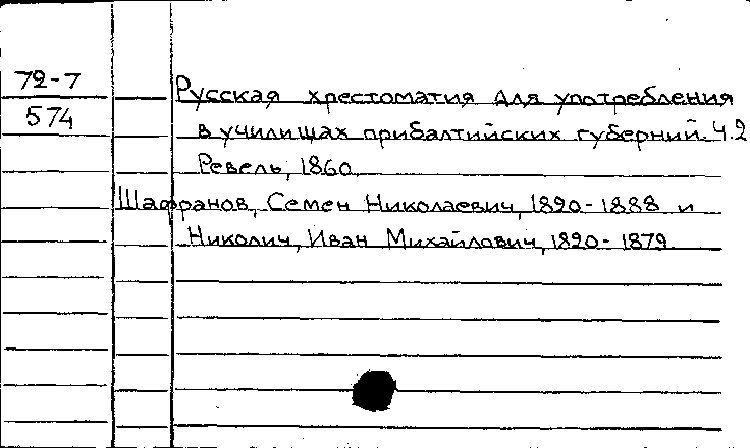 72-7
574
Русская хрестоматия для употребления
в училищах прибалтийских губерний. Ч.2
Ревель, 1860.
Шафранов, Семен Николаевич, 1820-1888 и
Николич, Иван Михайлович, 1820-1879